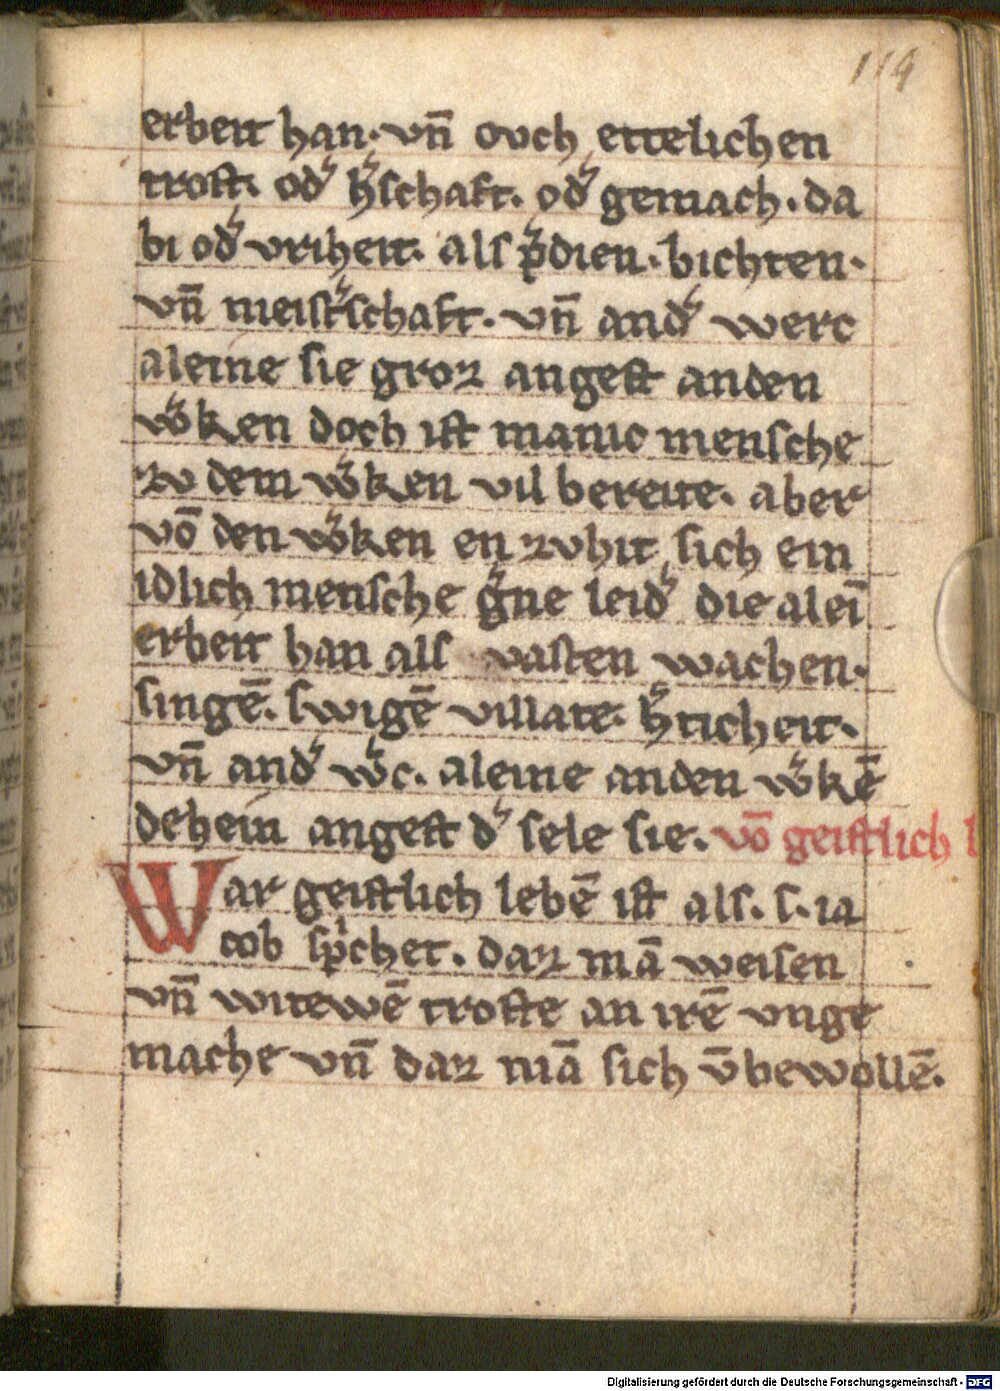 119
erbeit han· vn̄ ovch ettelichen
trost. od᷑ h᷑schaft. od᷑ gemach. da
bi od᷑ vriheit. als p᷑dien. bichten.
vn̄ meist᷑schaft. vn̄ and᷑ werc
aleine sie groz angest anden
w᷑ken doch ist manic mensche
zv dem w᷑ken vil bereite. aber
vō den w᷑ken en zvhit sich ein
idlich mensche g᷑ne leid᷑ die alei̅
erbeit han als vasten wachen.
singē. swigē villate. h᷑ticheit.
vn̄ and᷑ w᷑c. aleine anden w᷑kē
dehein angest d᷑ sele sie. vō geistlich l
War geistlich lebē ist als. s. ia
cob sp᷑chet. daz mā weisen
vn̄ witewē troste an irē vnge
mache vn̄ daz mā sich v̄bewollē.
Digitalisierung gefördert durch die Deutsche Forschungsgemeinschaft - DFG